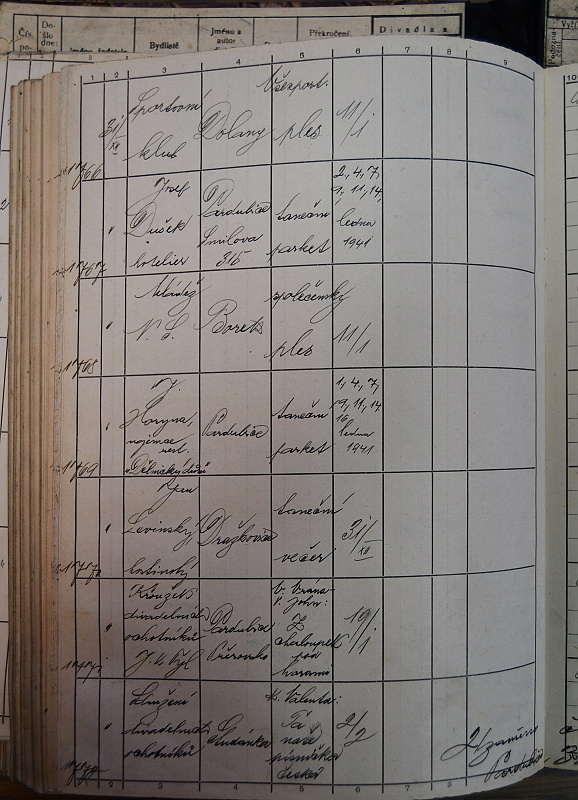 Bydliště
Jméno a
autor
Překročení
Divadla
1 2 3 4 5 6 7 8 9
1766
31/XII
Sportovní
klub
Dolany
Všesport.
ples
11/1
1767
"
Josef
Dušek
hotelier
Pardubice
Smilova
315
taneční
parket
2, 4, 7,
9, 11, 14,
ledna
1941
1768
"
Mládež
N. S.
Borek
společenský
ples
11/1
1769
"
J.
Horyna,
nájemce
rest.
"Dělnický dům
Pardubice
taneční
parket
1, 4, 7,
9, 11, 14
16,
ledna
1941
1770
"
Jan
Levinský,
hostinský
Dražkovice
taneční
večer
31/XII
1771
"
Kroužek
divadelních
ochotníků
J. K. Tyl
Pardubice
V. Vrána-
F. John:
Z
chaloupek
pod
horami
19/1
1772
"
Sdružení
divadelních
ochotníků
Studánka
K. Valenta:
Ta
naše
písnička
česká
2/2
1 2 3 4 5 6 7 8